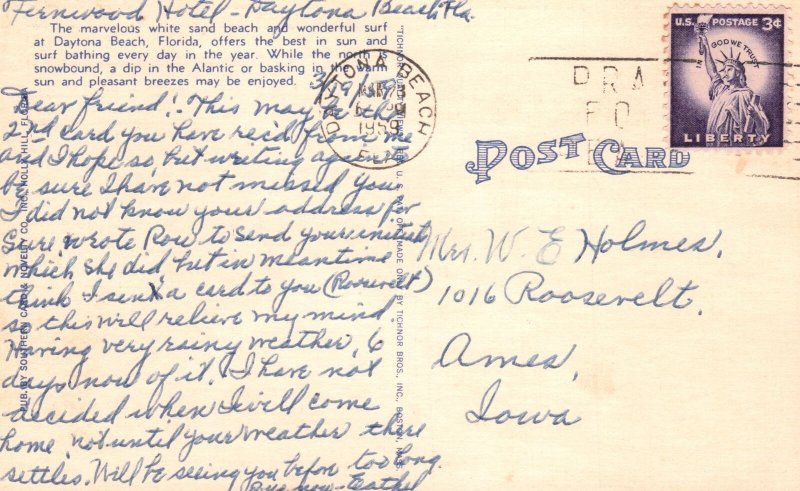 Fernwood Hotel - Daytona Beach Fla.
The marvelous white sand beach and wonderful surf
at Daytona Beach, Florida, offers the best in sun and
surf bathing every day in the year. While the north is
snowbound, a dip in the Alantic or basking in the warm
sun and pleasant breezes may be enjoyed.
Dear friend: This may be the
2nd card you have rec'd from me
and I hope so, but writing again to
be sure I have not missed you.
I did not know your address for
sure, wrote Row to send your initials
which she did, but in meantime
think I sent a card to you (Roosevelt)
so this will relieve my mind.
Having very rainy weather, 6
days now of it. I have not
decided when I will come
home, not until your weather there
settles. Will be seeing you before too long.
Bye now -
PUB. BY SOUTHERN CARD & NOVELTY CO., INC., HOLLY HILL, FLORIDA
MADE ONLY BY TICHNOR BROS., INC., BOSTON, MASS.
DAYTONA BEACH
MAR
1959
FLA.
PRA
FO
U.S. POSTAGE 3¢
IN GOD WE TRUST
LIBERTY
POST CARD
Mrs. W. E Holmes.
1016 Roosevelt.
Ames,
Iowa